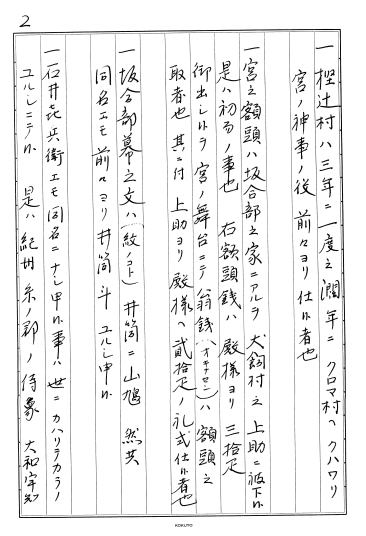 2
一 樫辻村ハ三年ニ一度之潤年ニ クロマ村ヘクハワリ
宮ノ神事ノ役 前々ヨリ仕ル者也
一宮之額頭ハ坂合部之家ニアルヲ 犬飼村之上助ニ被下ル
是ハ初メノ事也 右額頭銭ハ殿様ヨリ三拾疋
御出しトラ 宮ノ舞台ニテ 翁銭(オキナセン)ハ額頭之
取者也 其ニ付 上助ヨリ殿様ヘ貳拾疋ノ礼式仕ル者也
一坂合部幕之文ハ(紋ノコト) 井筒ニ山鳩 然共
同名エモ前々ヨリ井筒斗 ユルし申ル
一石井㐂兵衛エモ同名ニナし申ル事ハ 世ニカハリテカラノ
ユルしニテル 是ハ紀州 糸ノ郡ノ侍衆 大和宇智
KOKUYO